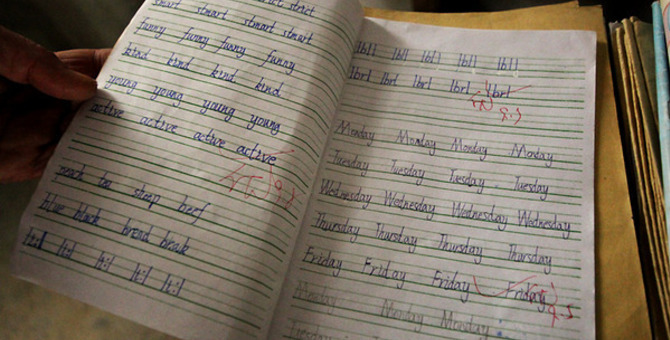 strict
smart smart smart smart
funny funny funny funny
kind kind kind kind
young young young young
active active active active
beef
blue black bread break
|bl| |bl| |bl| |bl| |bl|
|br| |br| |br| |br| |br|
9.3
Monday Monday Monday Monday
Tuesday Tuesday Tuesday Tuesday
Wednesday Wednesday Wednesday Wednesday
Thursday Thursday Thursday Thursday
Friday Friday Friday Friday
9.5
Monday Monday Monday
Tuesday